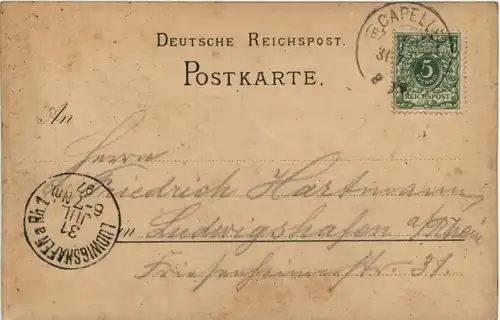 CAPELL
31
DEUTSCHE REICHSPOST.
POSTKARTE.
5
REICHSPOST
An
Herrn
Friedrich Hartmann
in Ludwigshafen a/Rhein
Friesenheimerstr. 31.
LUDWIGSHAFEN a. Rh. 1.
31
JUL
6-7 Nm
97